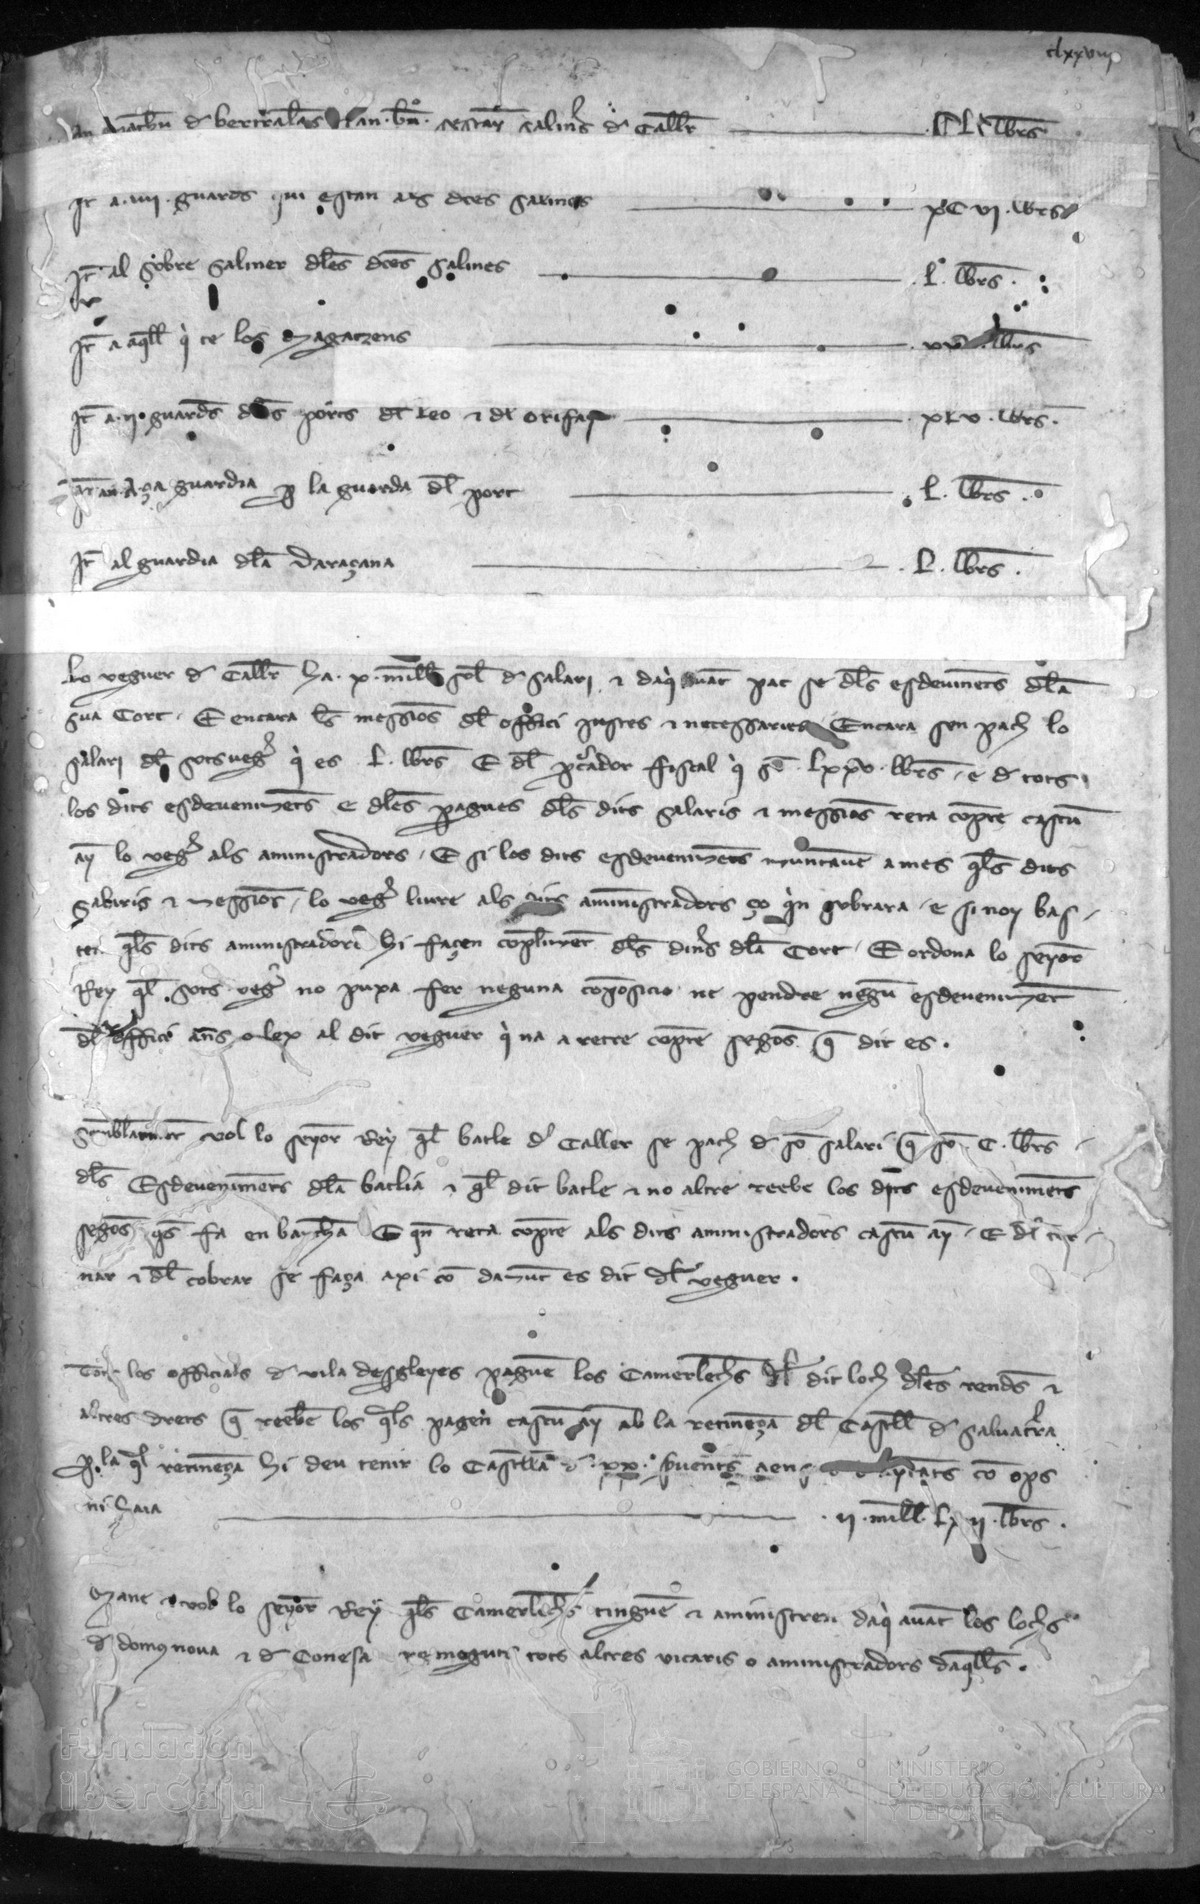 clxxviij
de bertralans an bn. saliners de Callr
It a .iiij. guardes qui estan a les dces salines xC vi. lbrs
It al sobre saliner dles dces salines .L. lbrs.
It a aqll qi te los magatzens lbrs
It a .ij. guardes dls ports dl Leo e dl orifay xLv. lbrs.
guardia p la guarda dl port .L. lbrs.
It al guardia dla daraçana .L. lbrs.
Lo veguer de Callr ha .x. mill sol de salari e daqi auat pac se dls esdeuimets dla
sua Cort. E encara les messios dl offici justes e necessaries Encara sen pach lo
salari dl sotsuegr qi es .L. lbrs E dl pcador fiscal qi so .Lxxv. lbrs. e de tots
los dits esdeueniments e dles pagues dls dits salaris e messios reta copte cascu
ay lo vegr als aministradors. E si los dits esdeueniments muntaue a mes qls dits
salaris e messios. lo vegr liure als dits aministradors ço qin sobrara. e si noy bas
tē qls dits aministradors hi façen coplimet dls diners dla Cort. E ordona lo seyor
Rey ql sots vegr no puxa fer neguna coposicio ne pendre negu esdeueniment
dl offici ans o lex al dit veguer qi na a retre copte segos q dit es.
Semblatmet vol lo seyor Rey ql batle de Caller se pach de so salari q so .C. lbrs.
dls Esdeueniments dla batlia e ql dit batle e no altre reebe los dits esdeueniments
segos qs fa en E qn reta copte als dits aministradors cascu ay. E dl tor
nar e dl cobrar se faça axi co damut es dit dl veguer.
Tots los officials de vila desgleyes pague los Camerlechs dl dit loch dles rendes e
altres drets q reebe los qls pagen cascu ay ab la retineça dl Castll de saluaterra
p la ql retineça hi deu tenir lo Castlla .xx. siruents co ops
ni haia .ij. mill Lxij. lbrs.
Mane e vol lo seyor Rey qls Camerlechs tingue e aministren daqi auat los lochs
de domusnoua e de Conesa remoguts tots altres vicaris o aministradors daqlls.
Fundación
iberCaja
GOBIERNO
DE ESPAÑA
MINISTERIO
DE EDUCACIÓN, CULTURA
Y DEPORTE